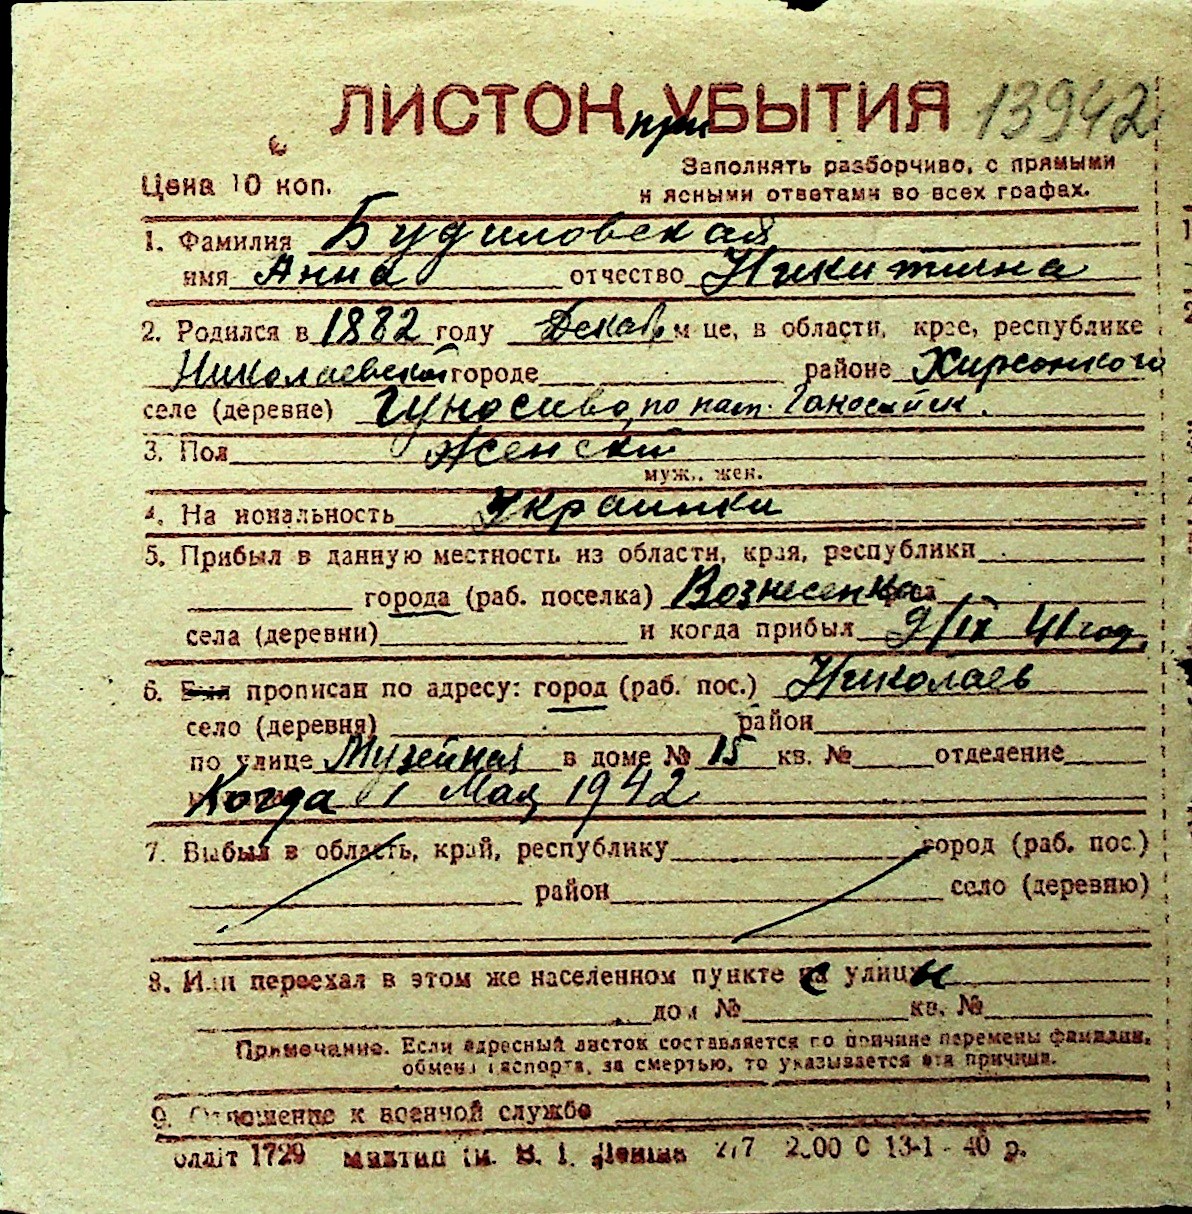 ЛИСТОК при УБЫТИЯ 13942
Заполнять разборчиво, с прямыми
Цена 10 коп. и ясными ответами во всех графах.
1. Фамилия Будиловская
имя Анна отчество Никитична
2. Родился в 1882 году Декаб м це, в области, крае, республике
Николаевской городе районе Хирсонкого
селе (деревне) по пат.
3. Пол Женский
муж., жен.
4. На иональность Украинка
5. Прибыл в данную местность из области, края, республики
города (раб. поселка) Вознесенка
села (деревни) и когда прибыл 9/IX 41 год.
6. Был прописан по адресу: город (раб. пос.) Николаев
село (деревня) район
по улице Музейная в доме № 15 кв. № отделение
Когда 1 Мая 1942
7. Выбыл в область, край, республику город (раб. пос.)
район село (деревню)
8. Или переехал в этом же населенном пункте с улицы
дом № кв. №
Примечание. Если адресный листок составляется по причине перемены фамилии,
обмена паспорта, за смертью, то указывается эта причина.
9. Отношение к военной службе
блліт 1729 ім. В. І. Леніна 277 2.00 0 13-1 - 40 р.